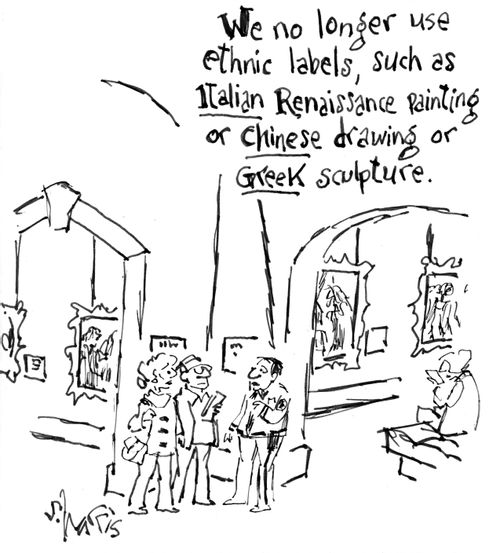 We no longer use
ethnic labels, such as
Italian Renaissance painting
or Chinese drawing or
Greek sculpture.
S. Harris